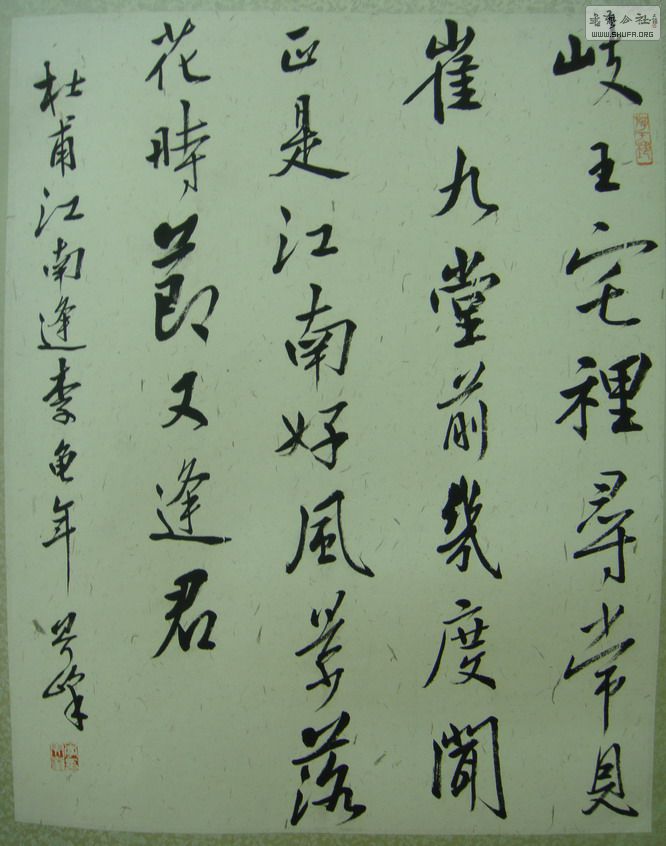 岐王宅裡尋常見
崔九堂前幾度聞
正是江南好風景落
花時節又逢君
杜甫江南逢李龟年
WWW.SHUFA.ORG